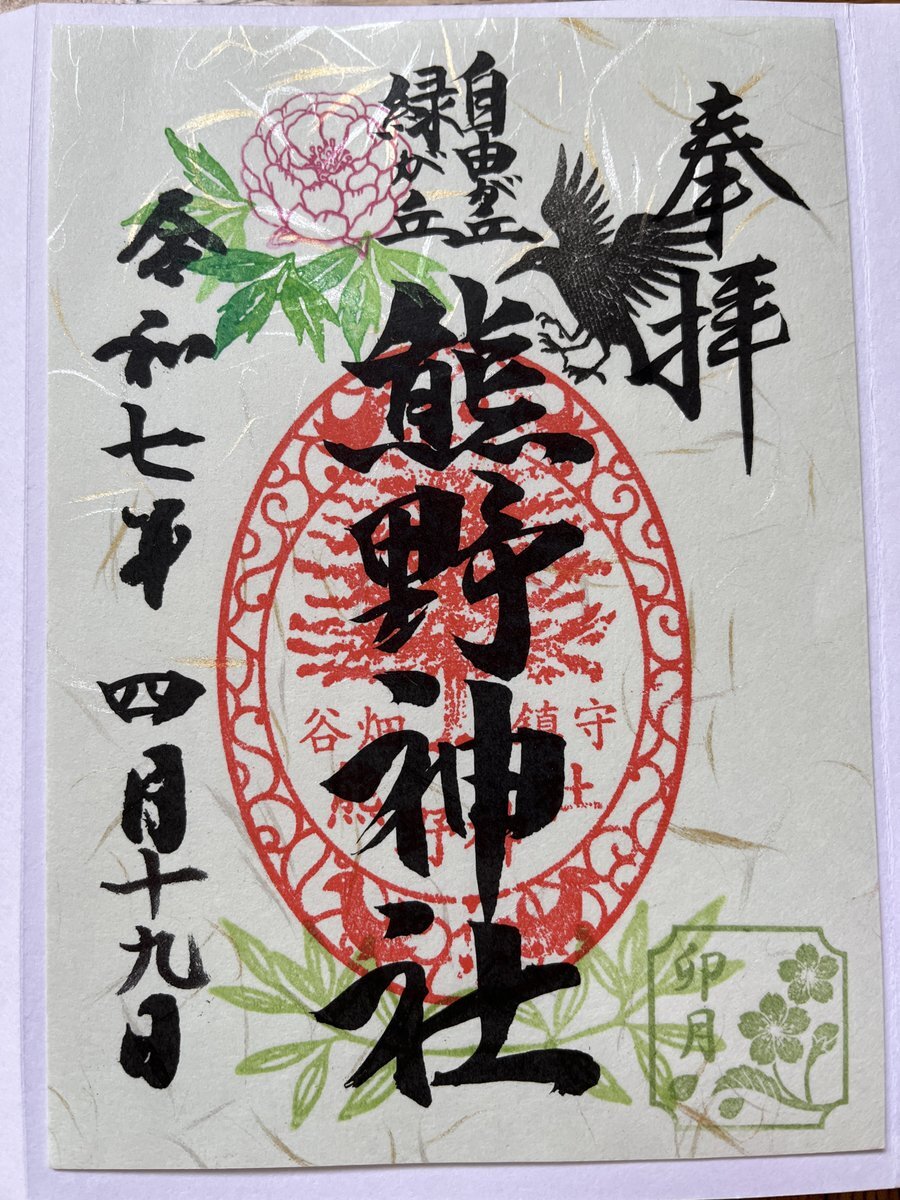 奉拝
自由が丘
緑が丘
熊野神社
令和七年 四月十九日
谷畑 鎮守
熊野神社
卯月